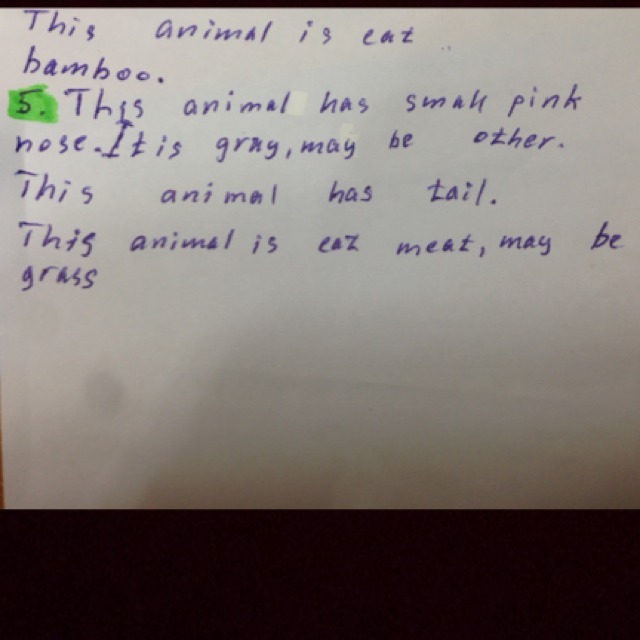 This animal is eat
bamboo.
5. This animal has small pink
nose. It is gray, may be other.
This animal has tail.
This animal is eat meat, may be
grass